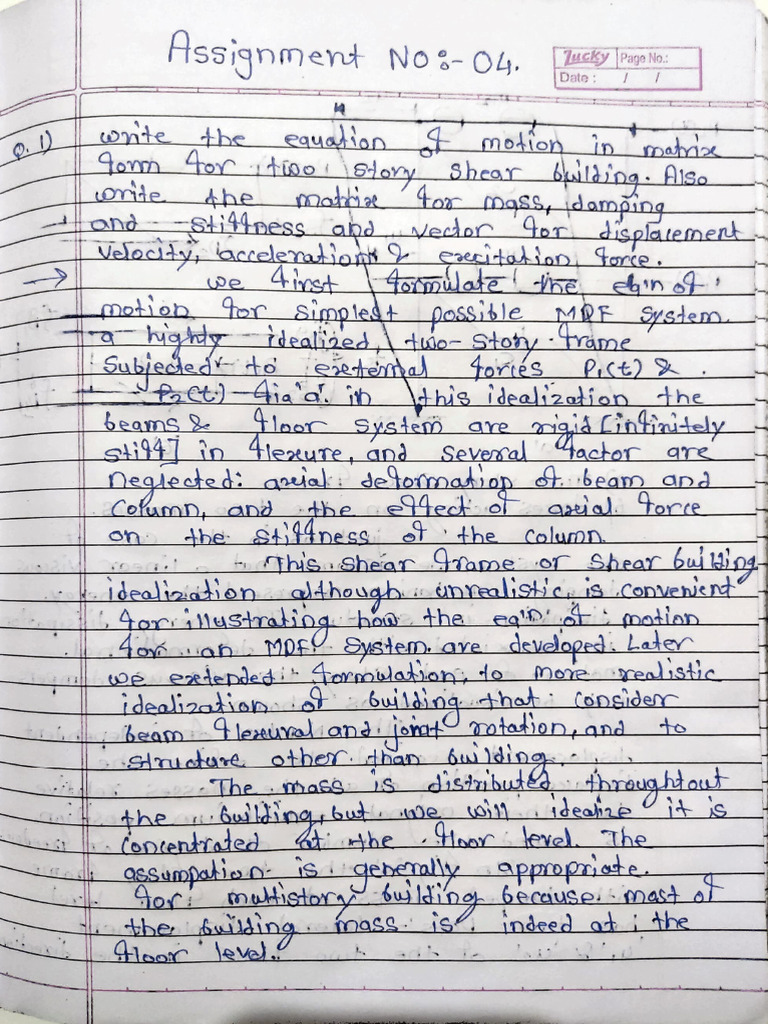 Assignment NO:- 04.
Lucky Page No.:
Date : / /
Q.1) write the equation of motion in matrix
form for two story shear building. Also
write the matrix for mass, damping
and stiffness and vector for displacement
velocity, acceleration & excitation force.
→ we first formulate the eq'n of
motion for simplest possible MDF system.
a highly idealized, two-story frame
subjected to external forces P1(t) &
P2(t) fia'a'. in this idealization the
beams & floor system are rigid [infinitely
stiff] in flexure, and several factor are
neglected: axial deformation of beam and
column, and the effect of axial force
on the stiffness of the column.
This shear frame or shear building
idealization although unrealistic, is convenient
for illustrating how the eq'n of motion
for an MDF system are developed. Later
we extended formulation, to more realistic
idealization of building that consider
beam flexural and joint rotation, and to
structure other than building.
The mass is distributed throughtout
the building, but we will idealize it is
concentrated at the floor level. The
assumpation is generally appropriate.
for multistory building because mast of
the building mass is indeed at the
floor level.